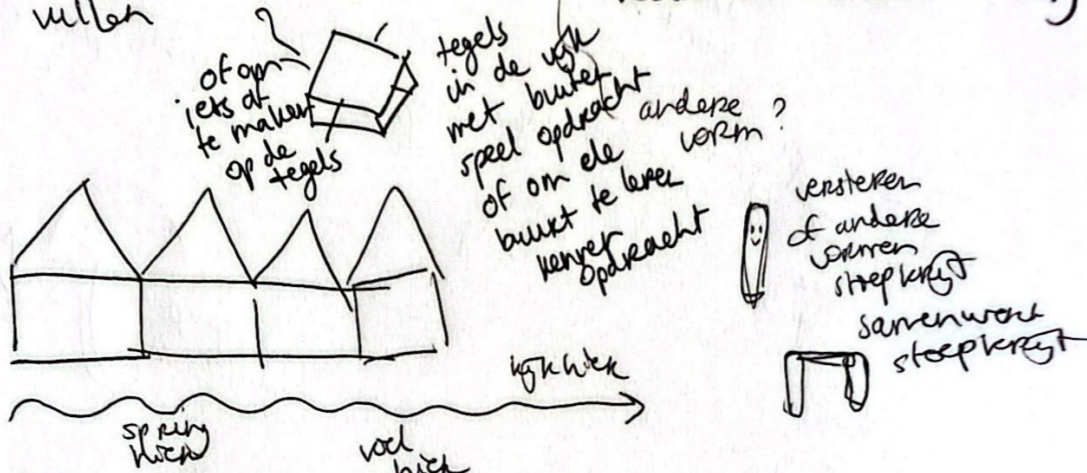 vullen
?
of om
iets af
te maken
op de
tegels
tegels
in de wijk
met buiten
speel opdracht
of om de
buurt te leren
kennen
opdracht
andere
vorm?
versieren
of andere
vormen
stoepkrijt
samenwerk
stoepkrijt
kijk hier
spring
hier
voel
hier